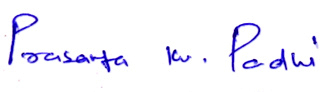 Prasanta Kr. Padhi